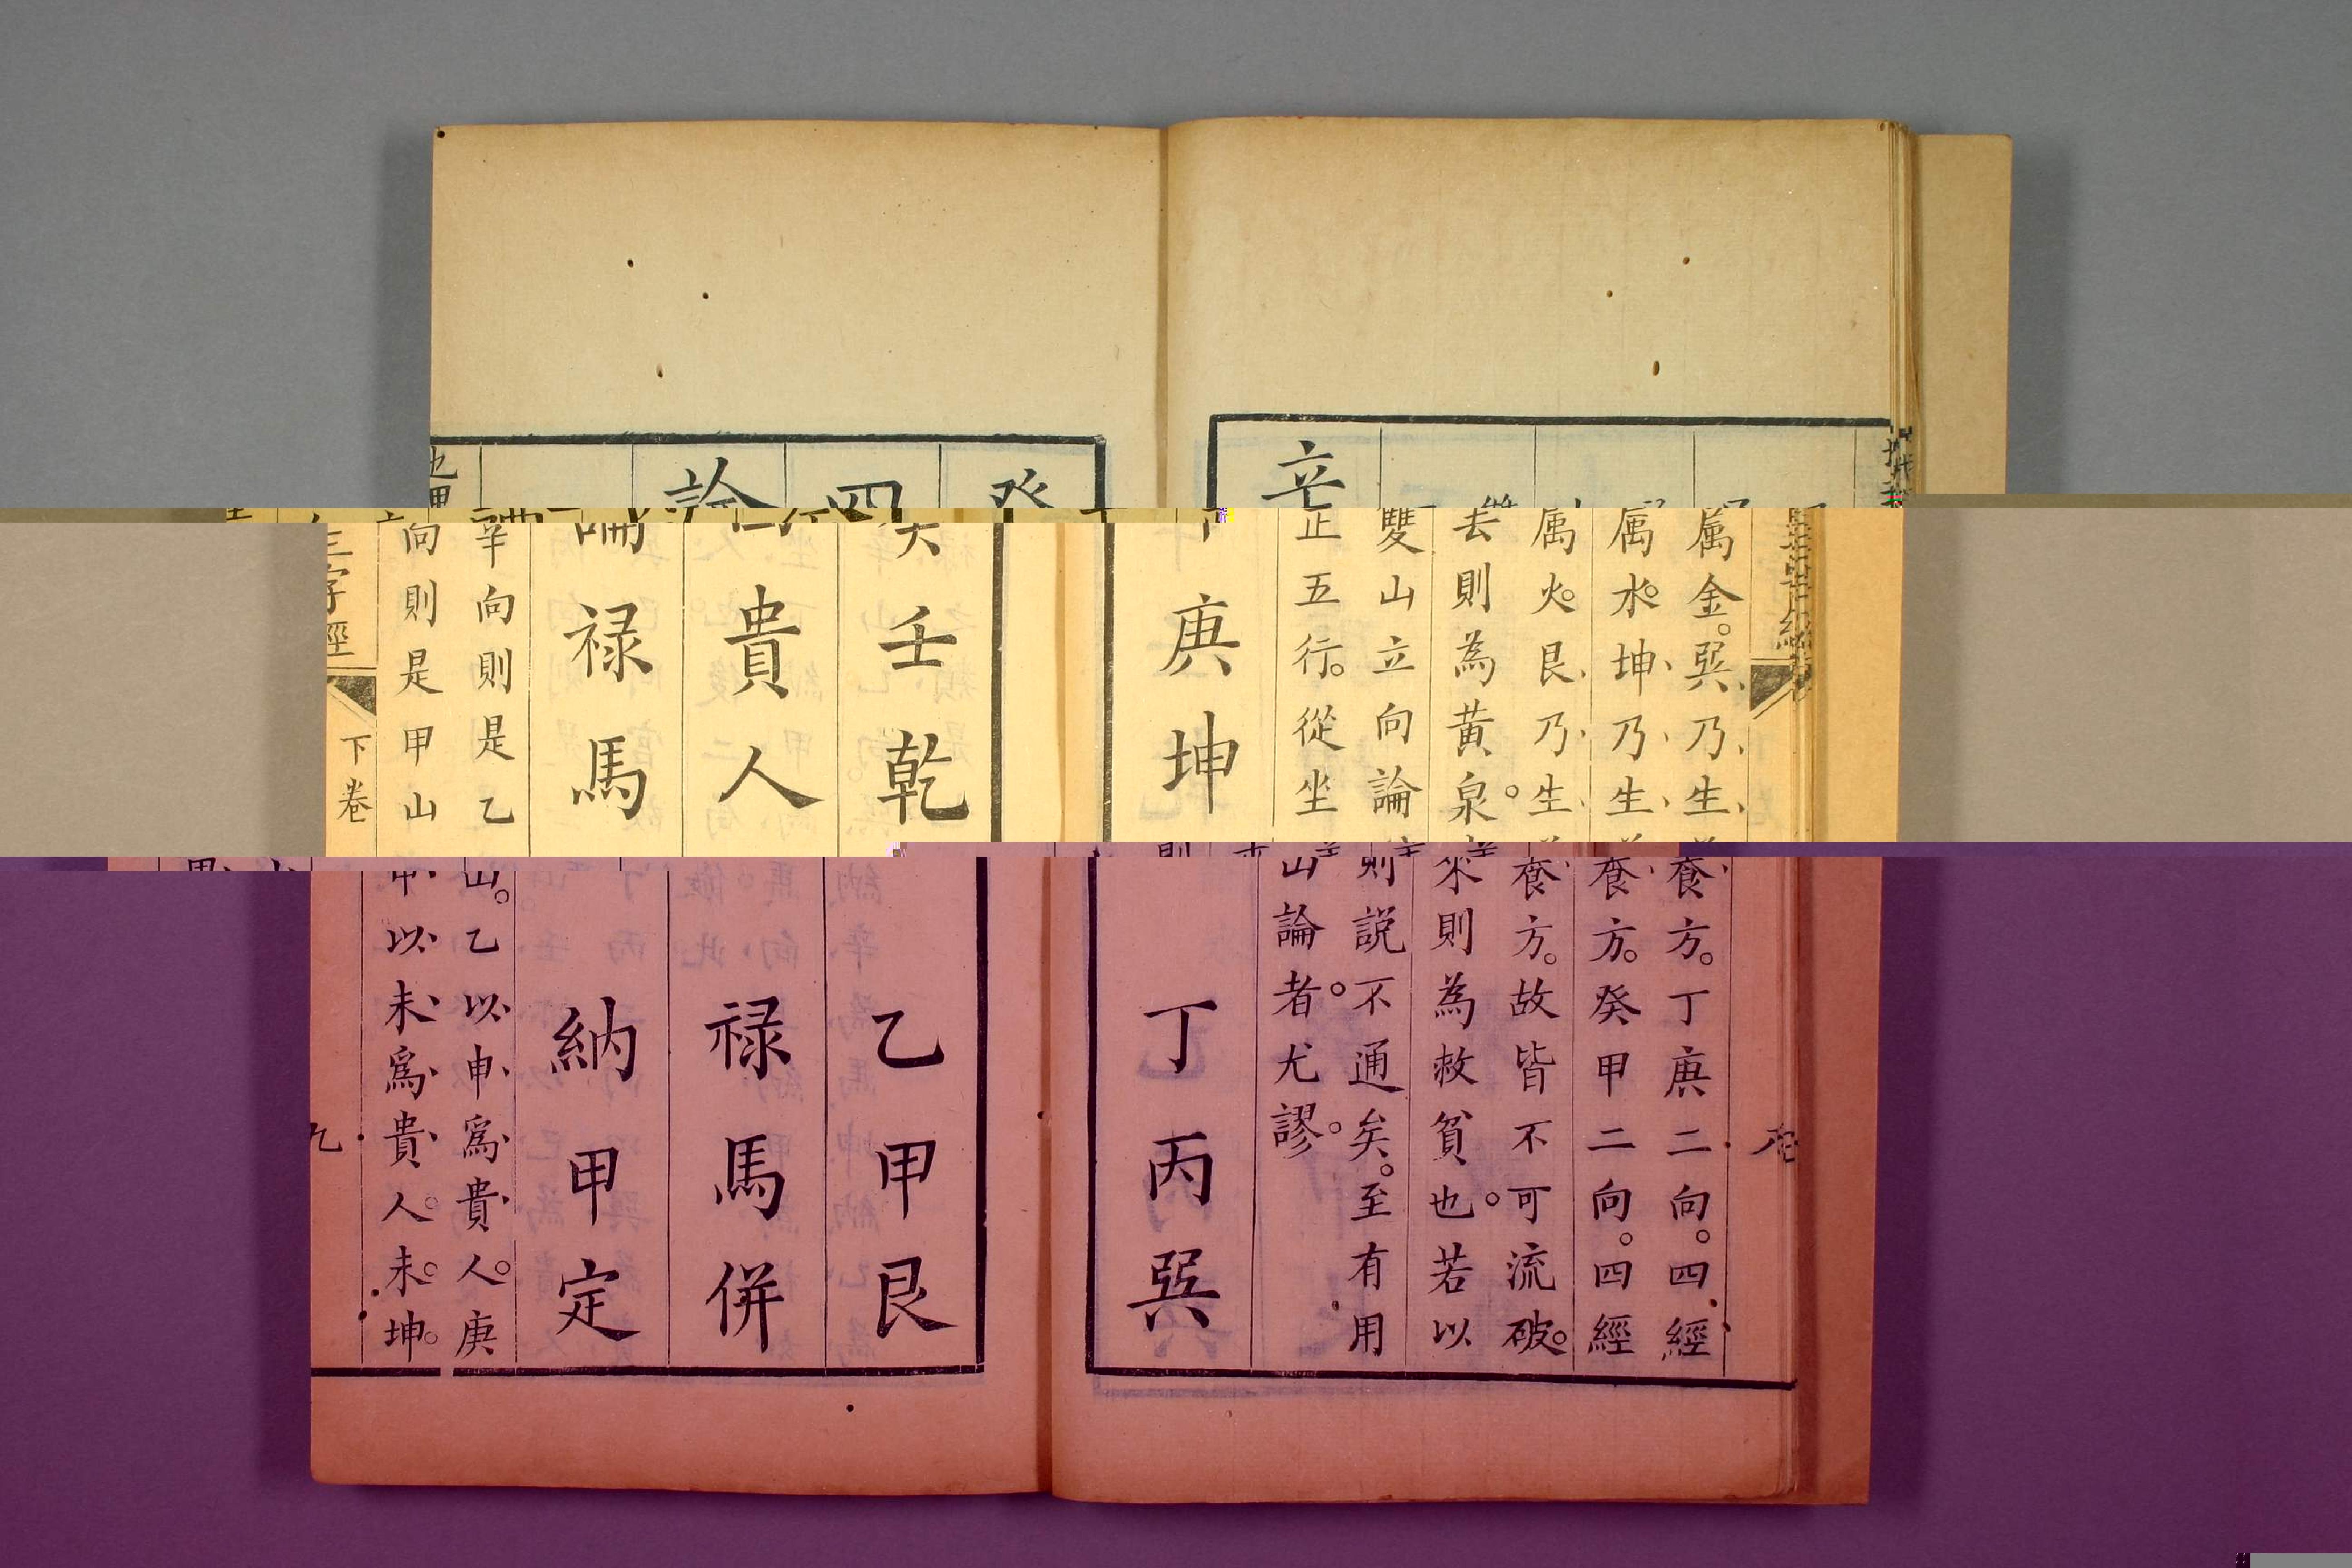 属金。巽乃生養方。丁庚二向。四經
属水。坤乃生養方。癸甲二向。四經
属火。艮乃生養方。故皆不可流破。
去則為黄泉。來則為救貧也。若以
雙山立向論則説不通矣。至有用
正五行。從坐山論者。尤謬。
庚坤丁丙巽
癸壬乾乙甲艮
四貴人禄馬併
論禄馬納甲定
辛向則是乙山。乙以申爲貴人。庚
向則是甲山甲以未爲貴人。未坤。
三字經 下卷 九